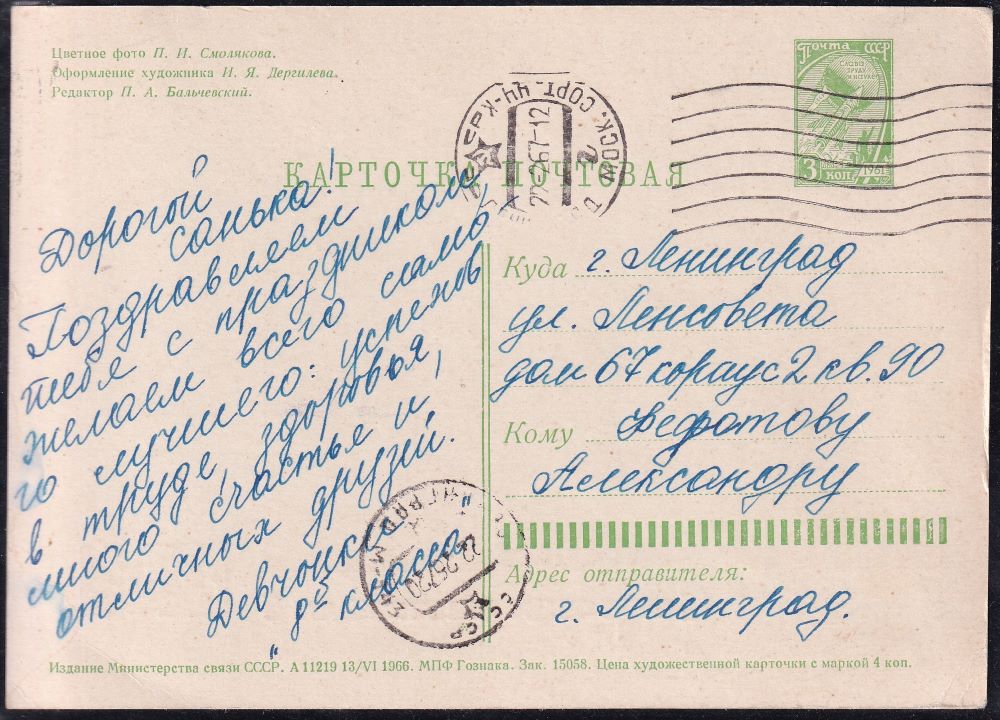 Цветное фото П. И. Смолякова.
Оформление художника И. Я. Дергилева.
Редактор П. А. Бальчевский.
Почта СССР
СЛАВА
ТРУДУ
И НАУКЕ
3 коп
1961
КАРТОЧКА ПОЧТОВАЯ
МОСК. СОРТ.
22267-12
Дорогой
Санька!
Поздравляем
тебя с праздником,
желаем всего само
го лучшего: успехов
в труде, здоровья,
много счастья и,
отличных друзей.
Девчонки
"д" класса.
Куда г. Ленинград
ул. Ленсовета
дом 67 корпус 2 кв. 90
Кому Федотову
Александру
Адрес отправителя:
г. Ленинград.
ЛЕНИНГРАД М-
СССР
Издание Министерства связи СССР. А 11219 13/VI 1966. МПФ Гознака. Зак. 15058. Цена художественной карточки с маркой 4 коп.